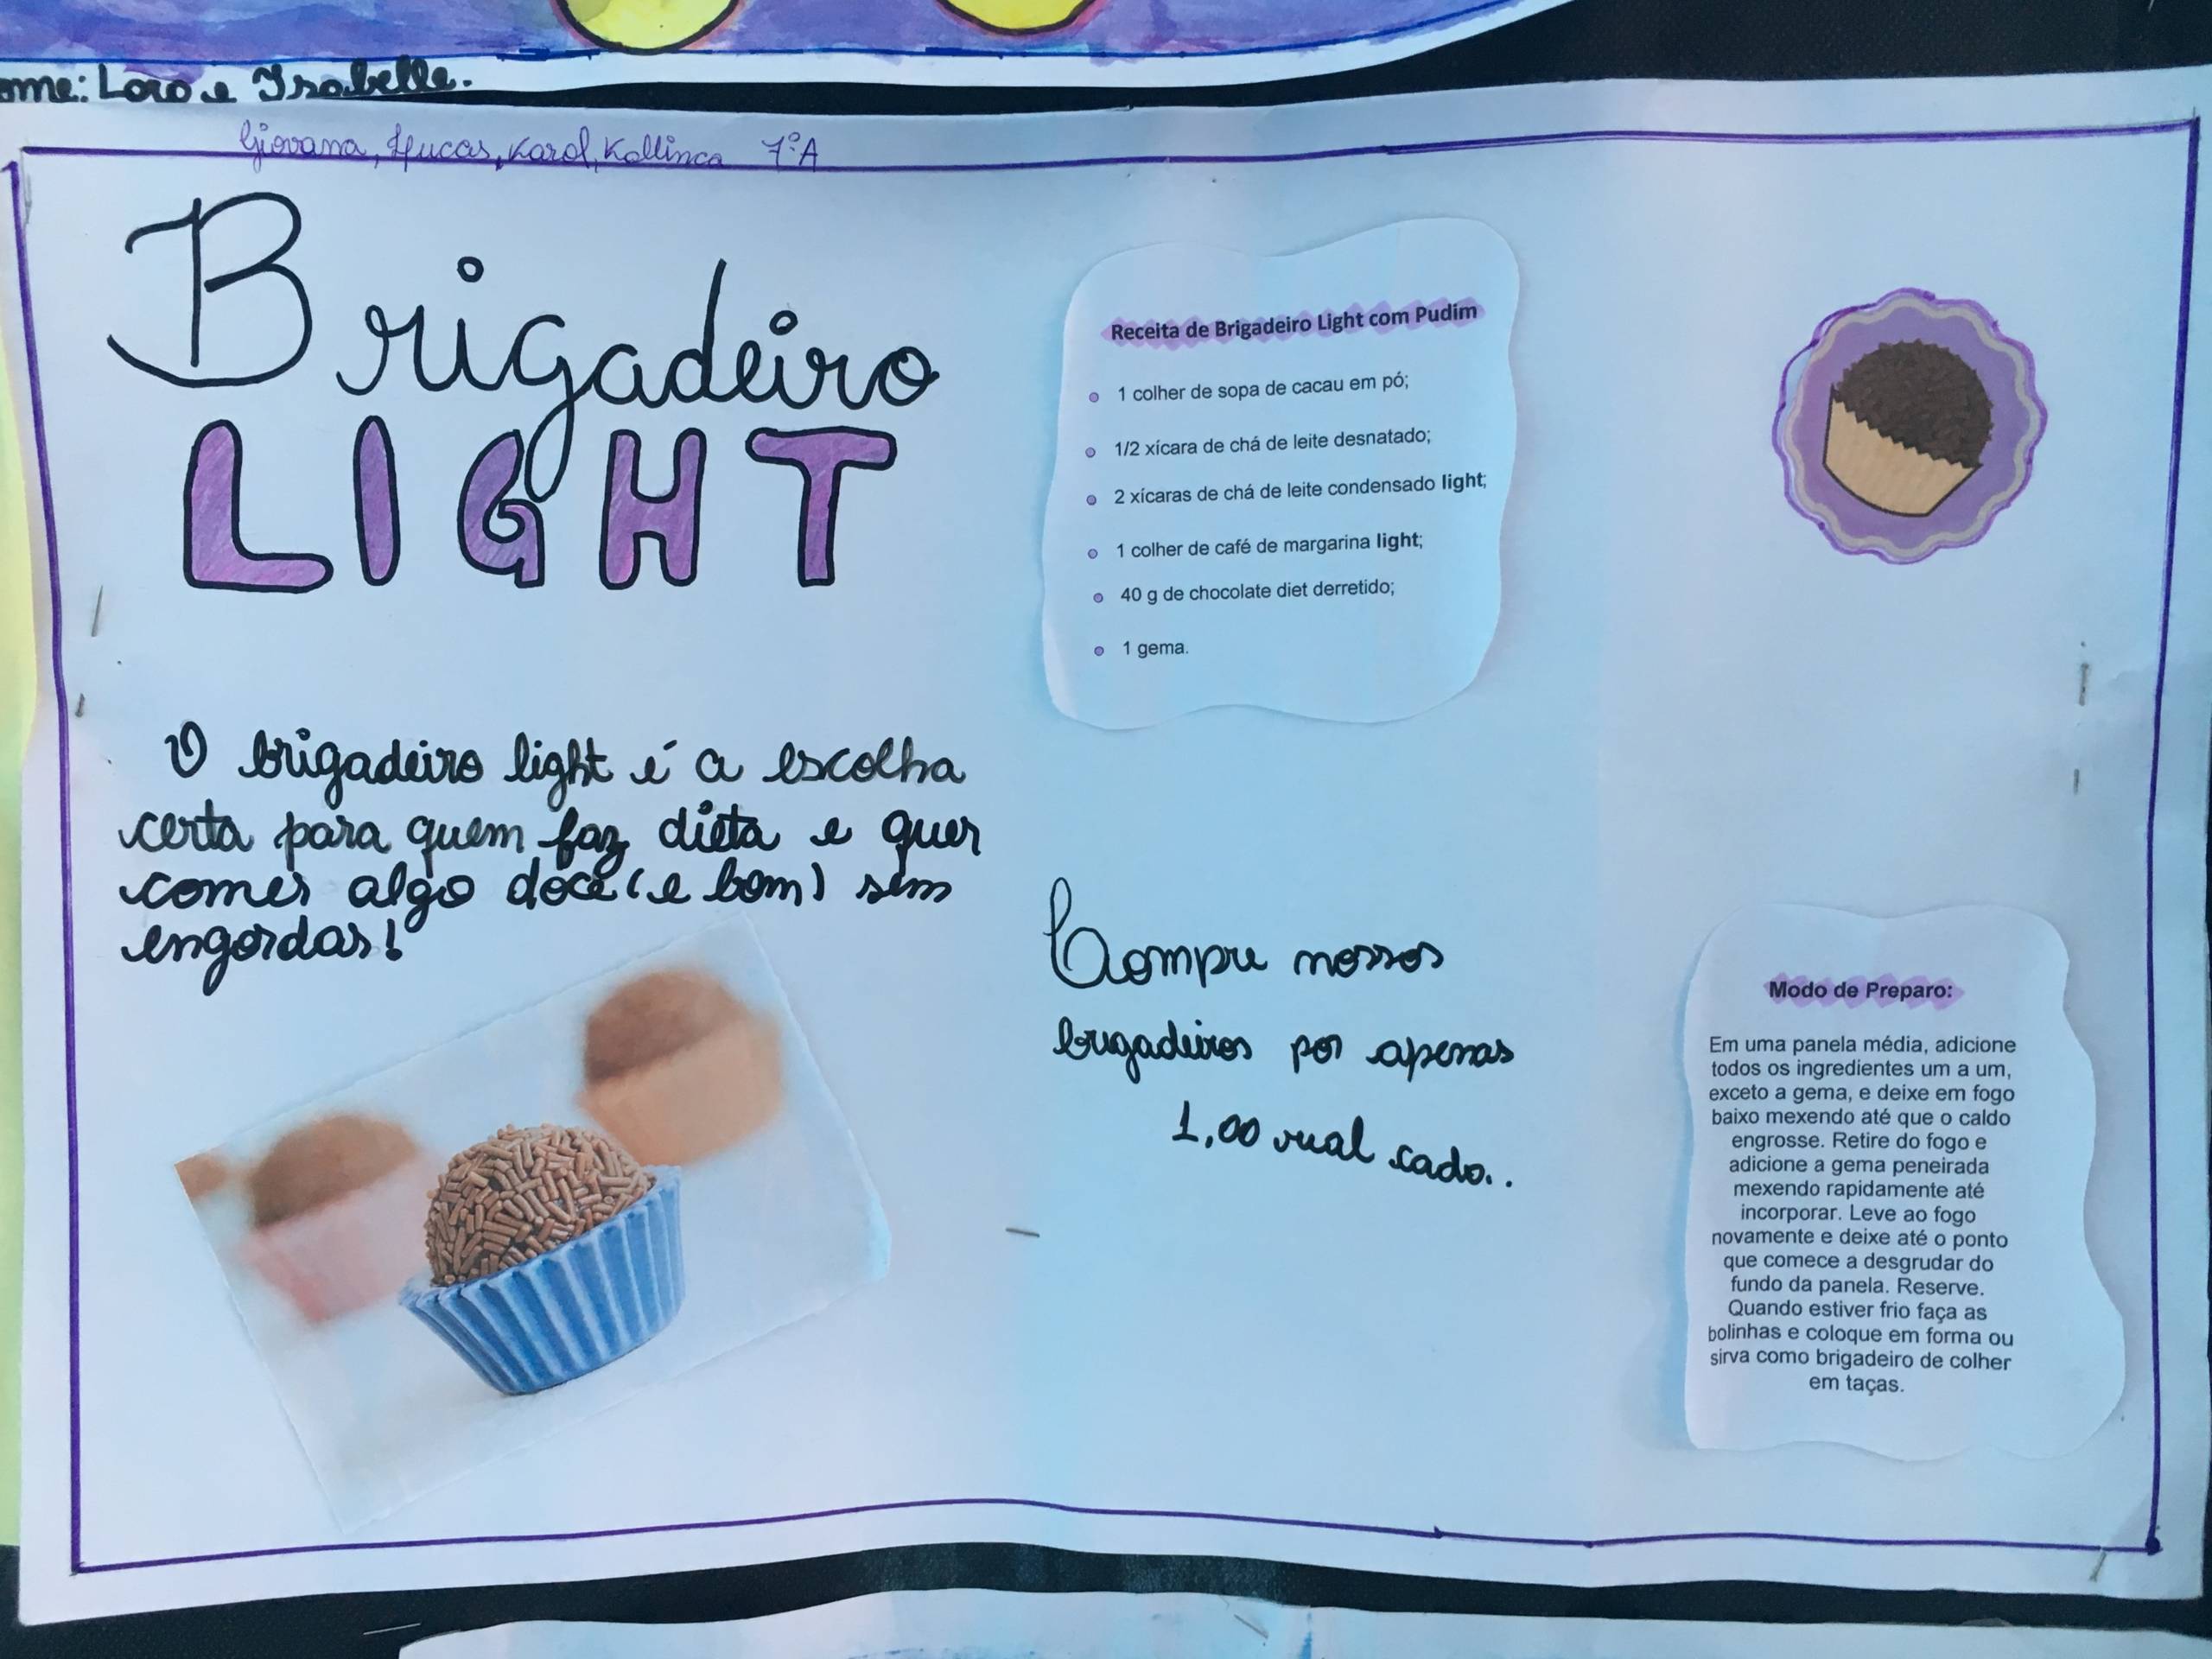 ome: Lara e Isabelle.
Giovana, Lucas, Karol, Kallinca 7ºA
Brigadeiro
LIGHT
O brigadeiro light é a escolha
certa para quem faz dieta e quer
comer algo doce (e bom) sem
engordar!
Receita de Brigadeiro Light com Pudim
1 colher de sopa de cacau em pó;
1/2 xícara de chá de leite desnatado;
2 xícaras de chá de leite condensado light;
1 colher de café de margarina light;
40 g de chocolate diet derretido;
1 gema.
Compre nossos
brigadeiros por apenas
1,00 real cada..
Modo de Preparo:
Em uma panela média, adicione
todos os ingredientes um a um,
exceto a gema, e deixe em fogo
baixo mexendo até que o caldo
engrosse. Retire do fogo e
adicione a gema peneirada
mexendo rapidamente até
incorporar. Leve ao fogo
novamente e deixe até o ponto
que comece a desgrudar do
fundo da panela. Reserve.
Quando estiver frio faça as
bolinhas e coloque em forma ou
sirva como brigadeiro de colher
em taças.